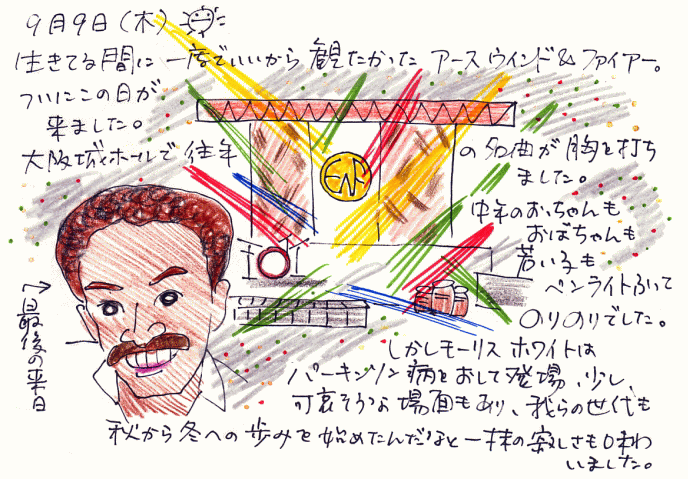 9月9日(木)
生きてる間に一度でいいから観たかったアースウインド&ファイアー。
ついにこの日が
来ました。
大阪城ホールで往年
の名曲が胸を打ち
ました。
中年のおっちゃんも
おばちゃんも
若い子も
ペンライトふって
のりのりでした。
しかしモーリスホワイトは
パーキンソン病をおして登場、少し
可哀そうな場面もあり、我らの世代も
秋から冬への歩みを始めたんだなと一抹の寂しさも味わ
いました。
EWF
→最後の来日